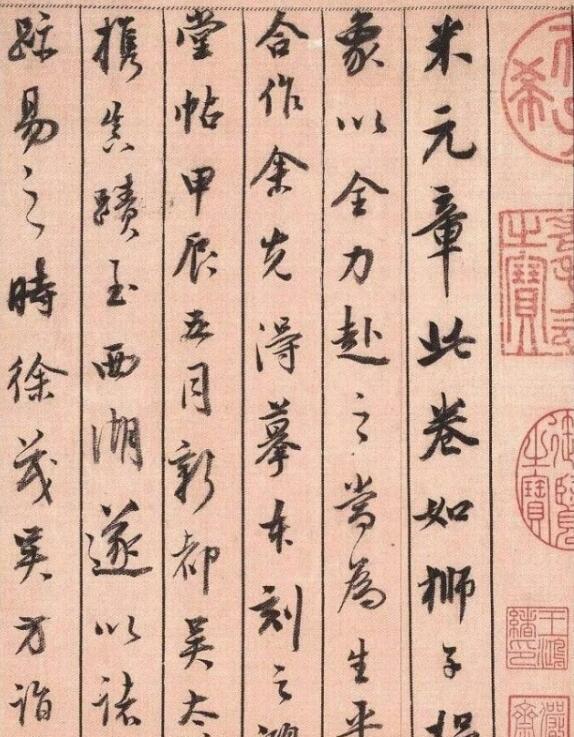 米元章此卷如獅子捉
象以全力赴之當為生平
合作余先得摹本刻之鴻
堂帖甲辰五月新都吳太
攜真蹟至西湖遂以諸
跡易之時徐茂吳方詣
御覽之寶